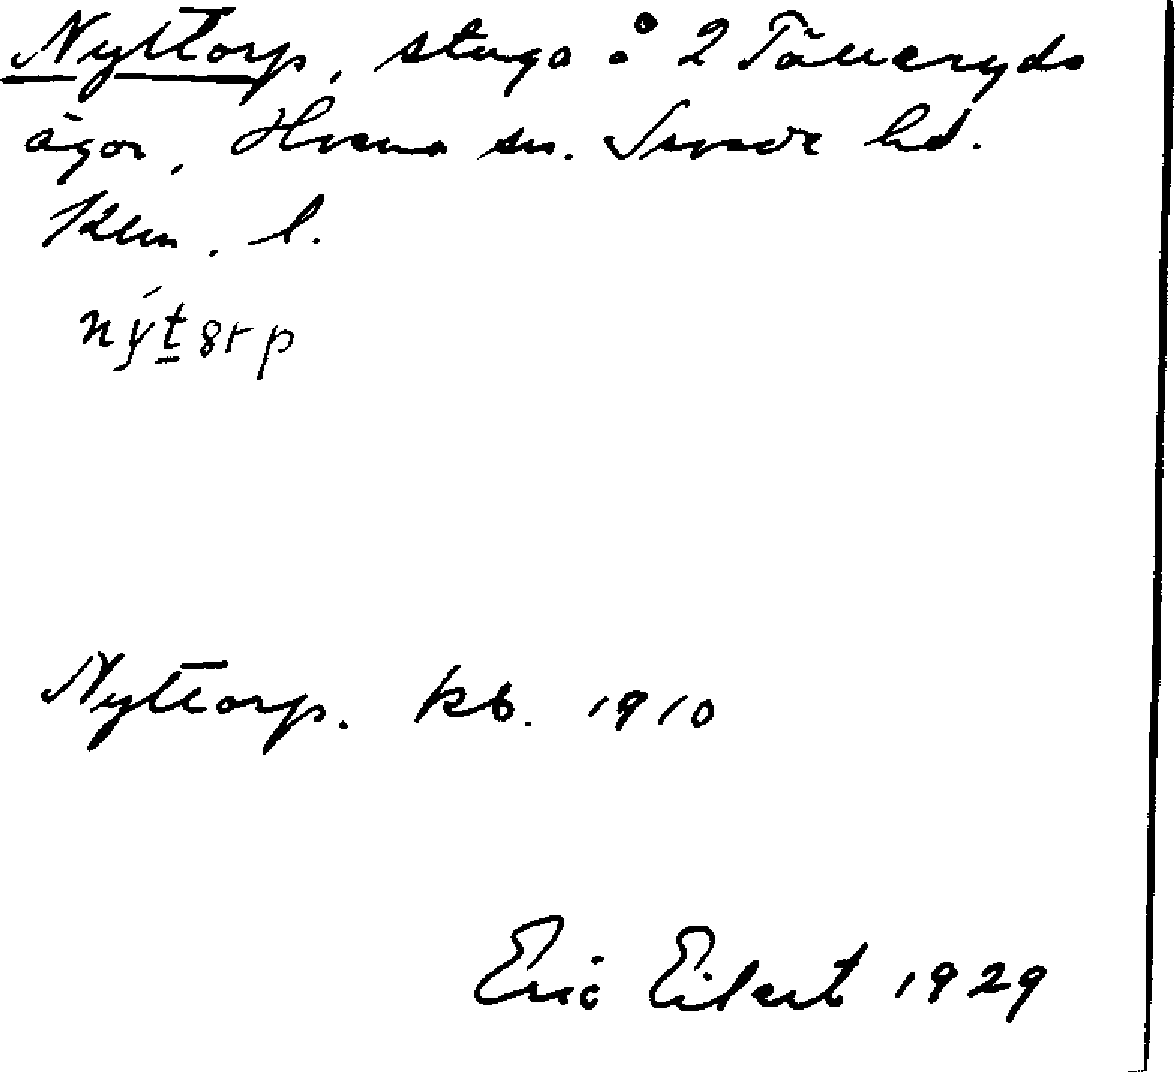 Nyttorp, stuga å 2 Tälleryds
ägor, Hvena sn. Sevede hd.
Klm. l.
nýt8rp
Nyttorp. kb. 1910
Eric Eilert 1929